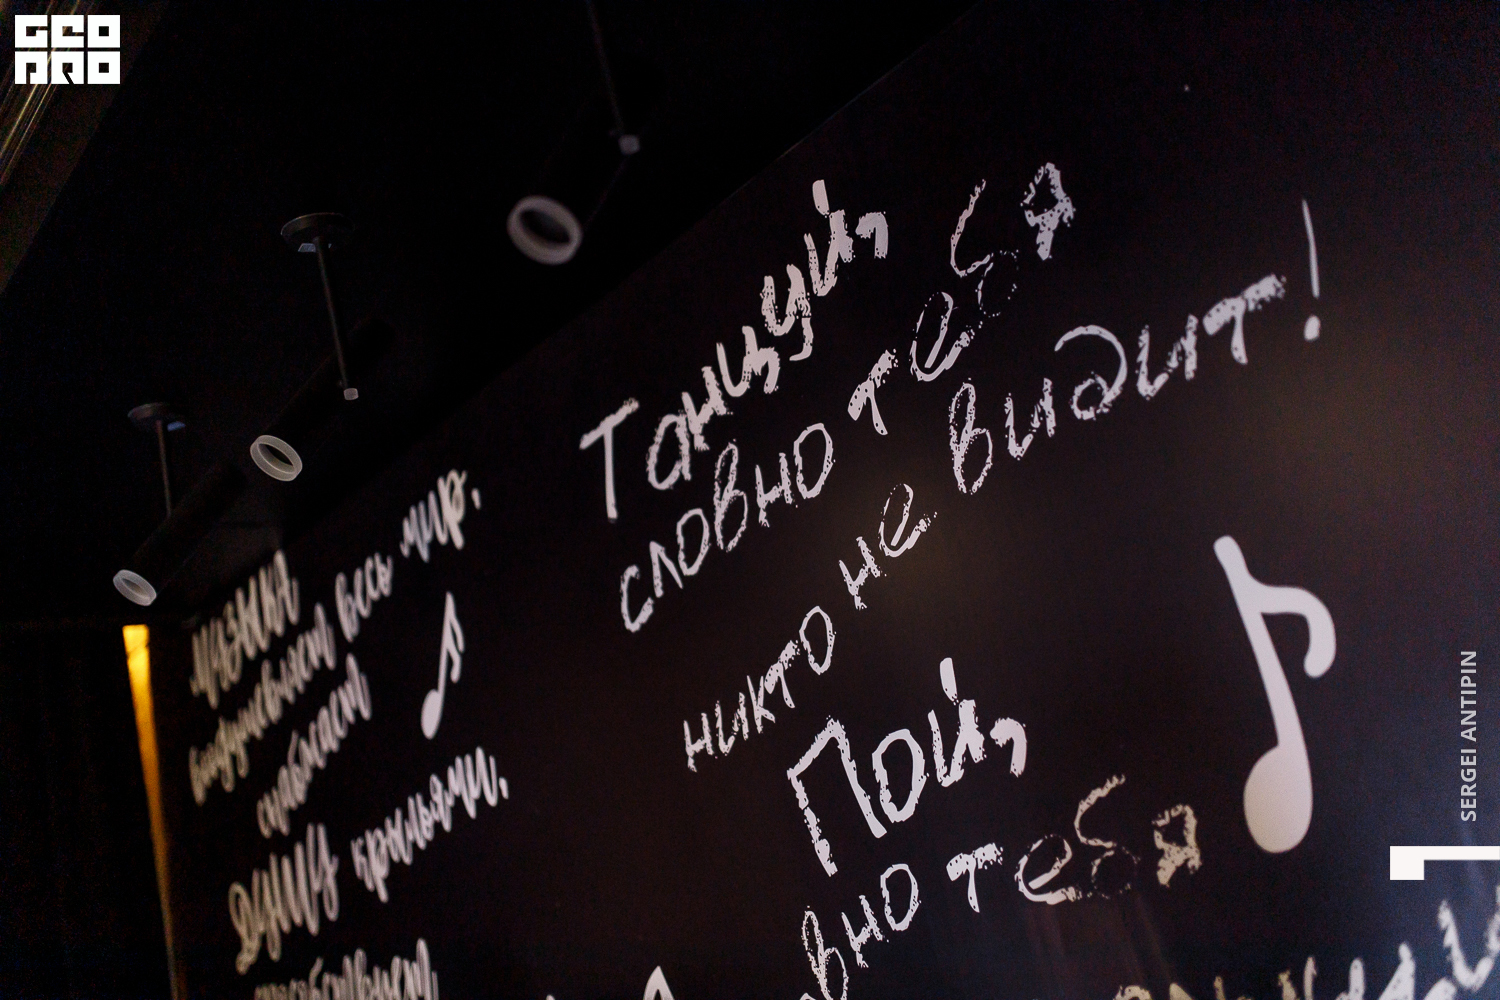 GEO
PRO
МУЗЫКА
воодушевляет весь мир,
снабжает
ДУШУ крыльями,
способствует
Танцуй,
словно тебя
никто не видит!
Пой,
вно тебя
SERGEI ANTIPIN